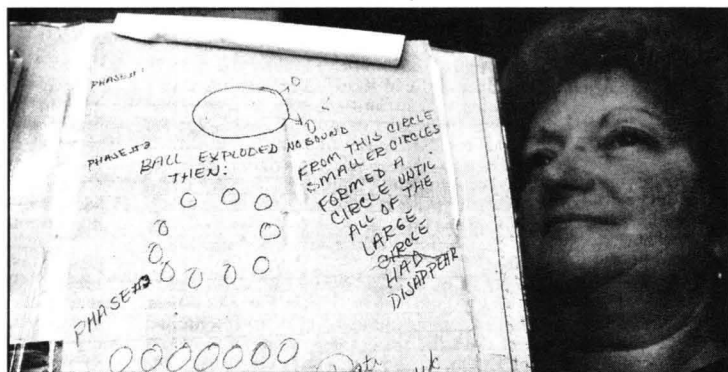 PHASE#1
PHASE#2
BALL EXPLODED NO BOUND
THEN:
FROM THIS CIRCLE
SMALLER CIRCLES
FORMED A
CIRCLE UNTIL
ALL OF THE
LARGE
CIRCLE
HAD
DISAPPEAR
PHASE#3